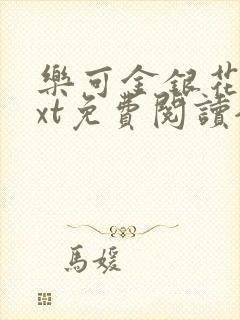 樂可金銀花
xt免費閱讀
馬媛